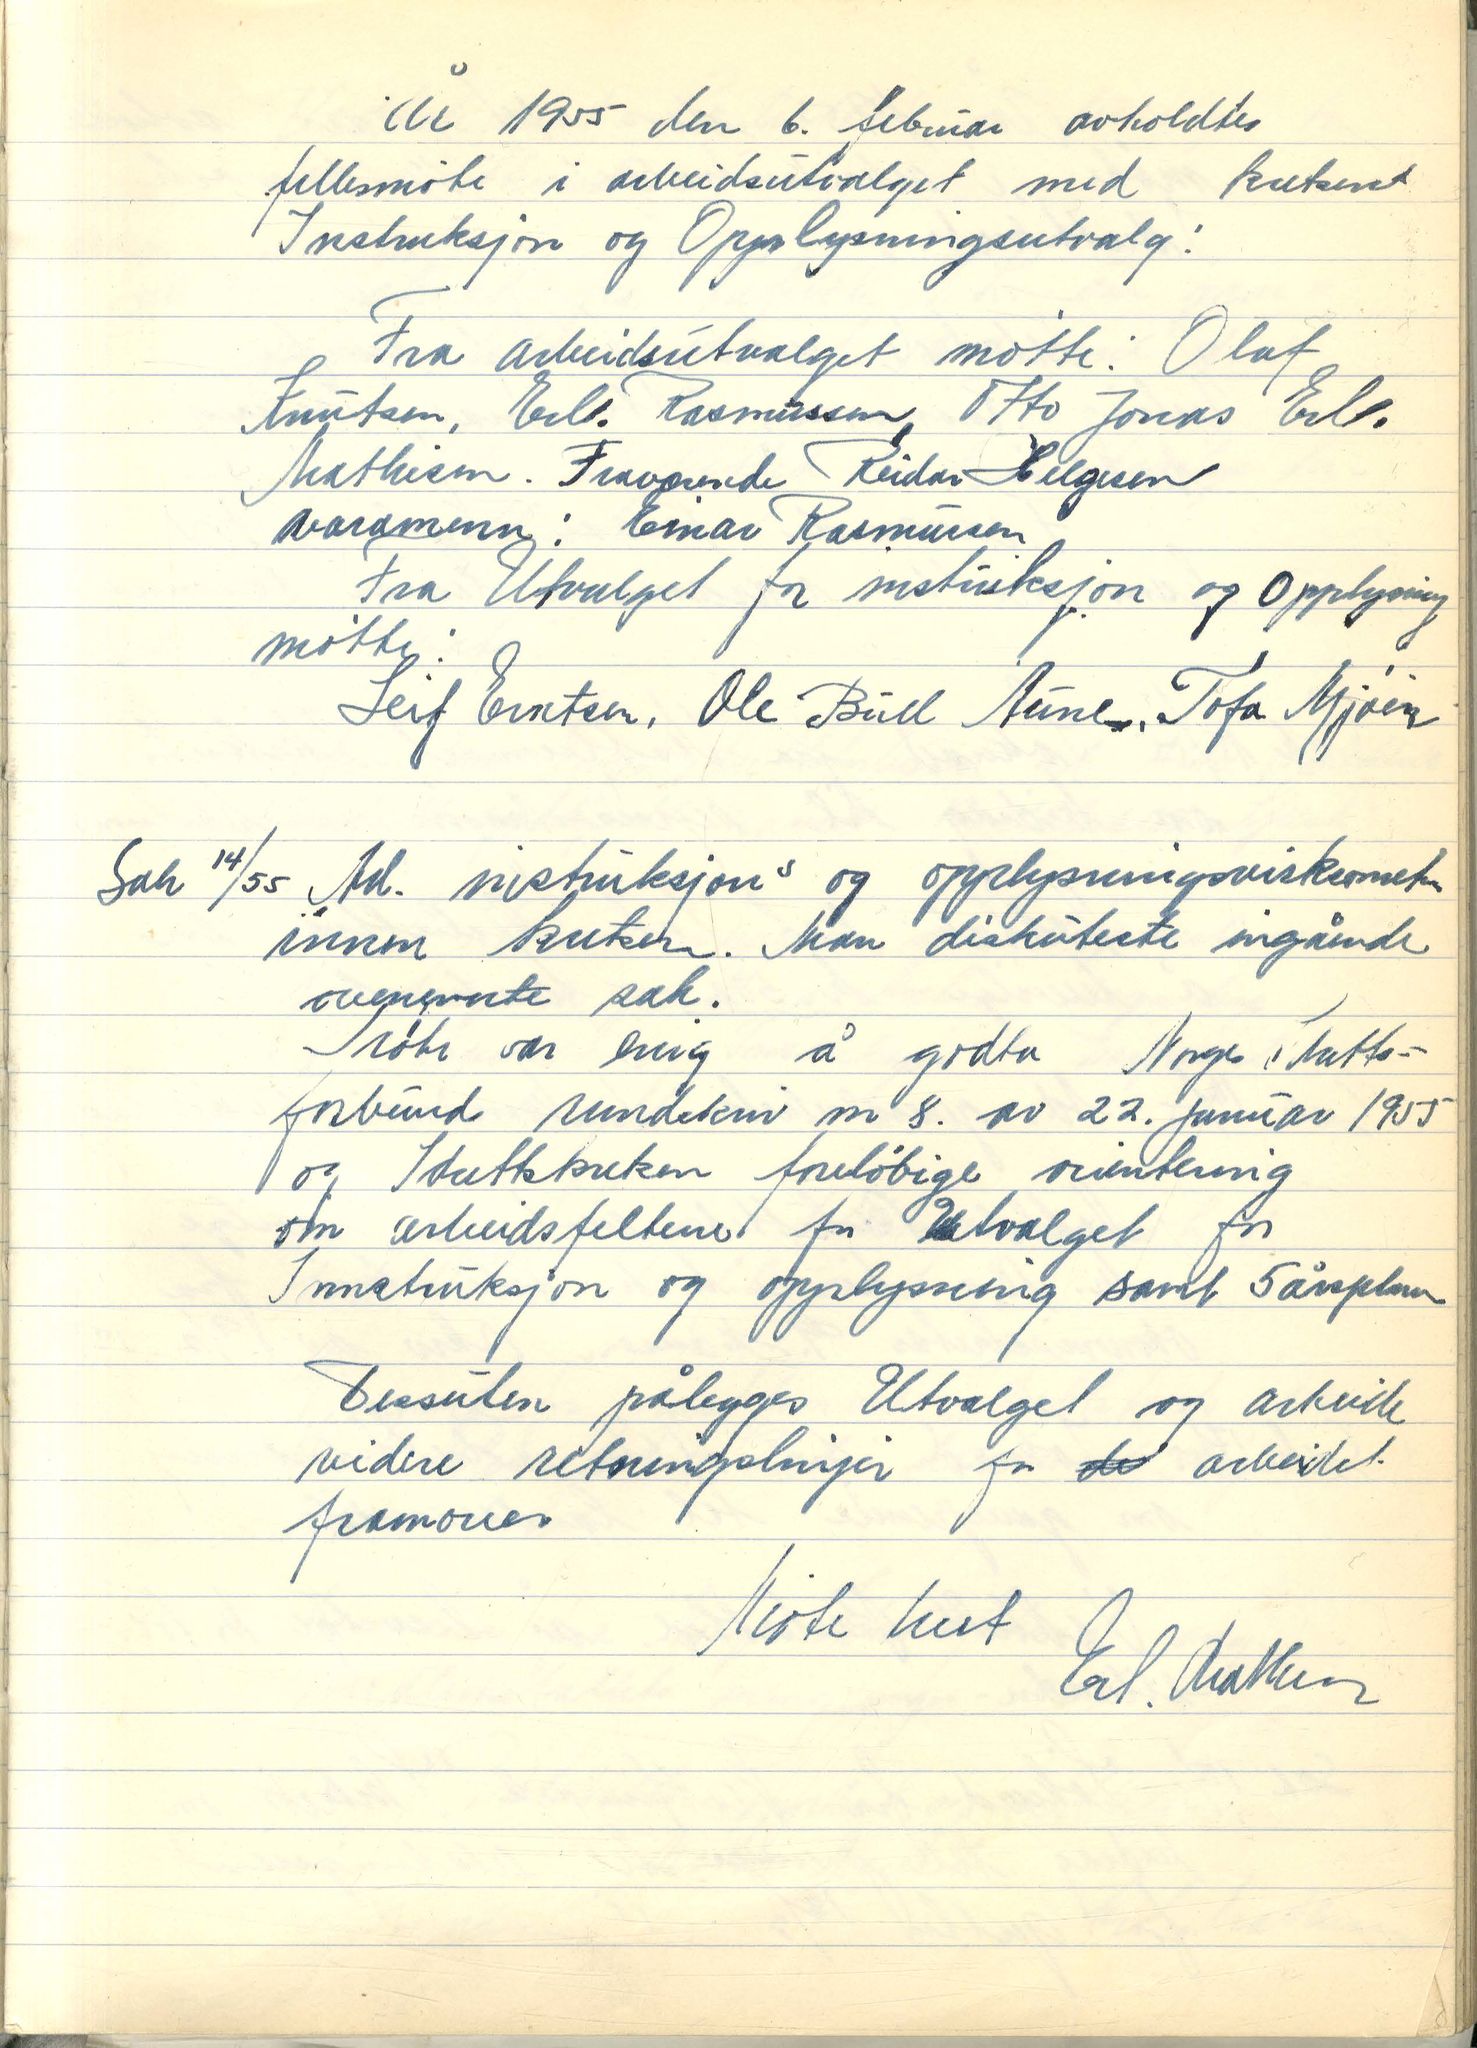 År 1955 den 6. februar avholdtes
fellesmöte i arbeidsutvalget med kretsens
Instruksjon og Opplysningsutvalg:
Fra arbeidsutvalget mötte: Olaf
Knutsen, Erl. Rasmussen, Otto Jonas Erl.
Mathisen. Fraværende Reidar Helgesen
varamenn: Einar Rasmussen
Fra Utvalget for instruksjon og Opplysning
mötte:
Leif Erntsen, Ole Bull Aune, Tofa Mjöen
Sak 14/55 Ad. instruksjons og opplysningsvirksomheten
innen kretsen. Man diskuterte ingående
ovenevnte sak.
Möte var enig å godta Norges Idretts-
forbund rundskriv nr 8. av 22. januar 1955
og Idrettskretsen foreløbige orientering
om arbeidsfeltene for Utvalget for
Innstruksjon og opplysning samt 5 årsplan
Dessuten pålegges Utvalget og arbeide
videre retningslinjer for de arbeidet
framover
Möte hevt
Erl. Mathisen